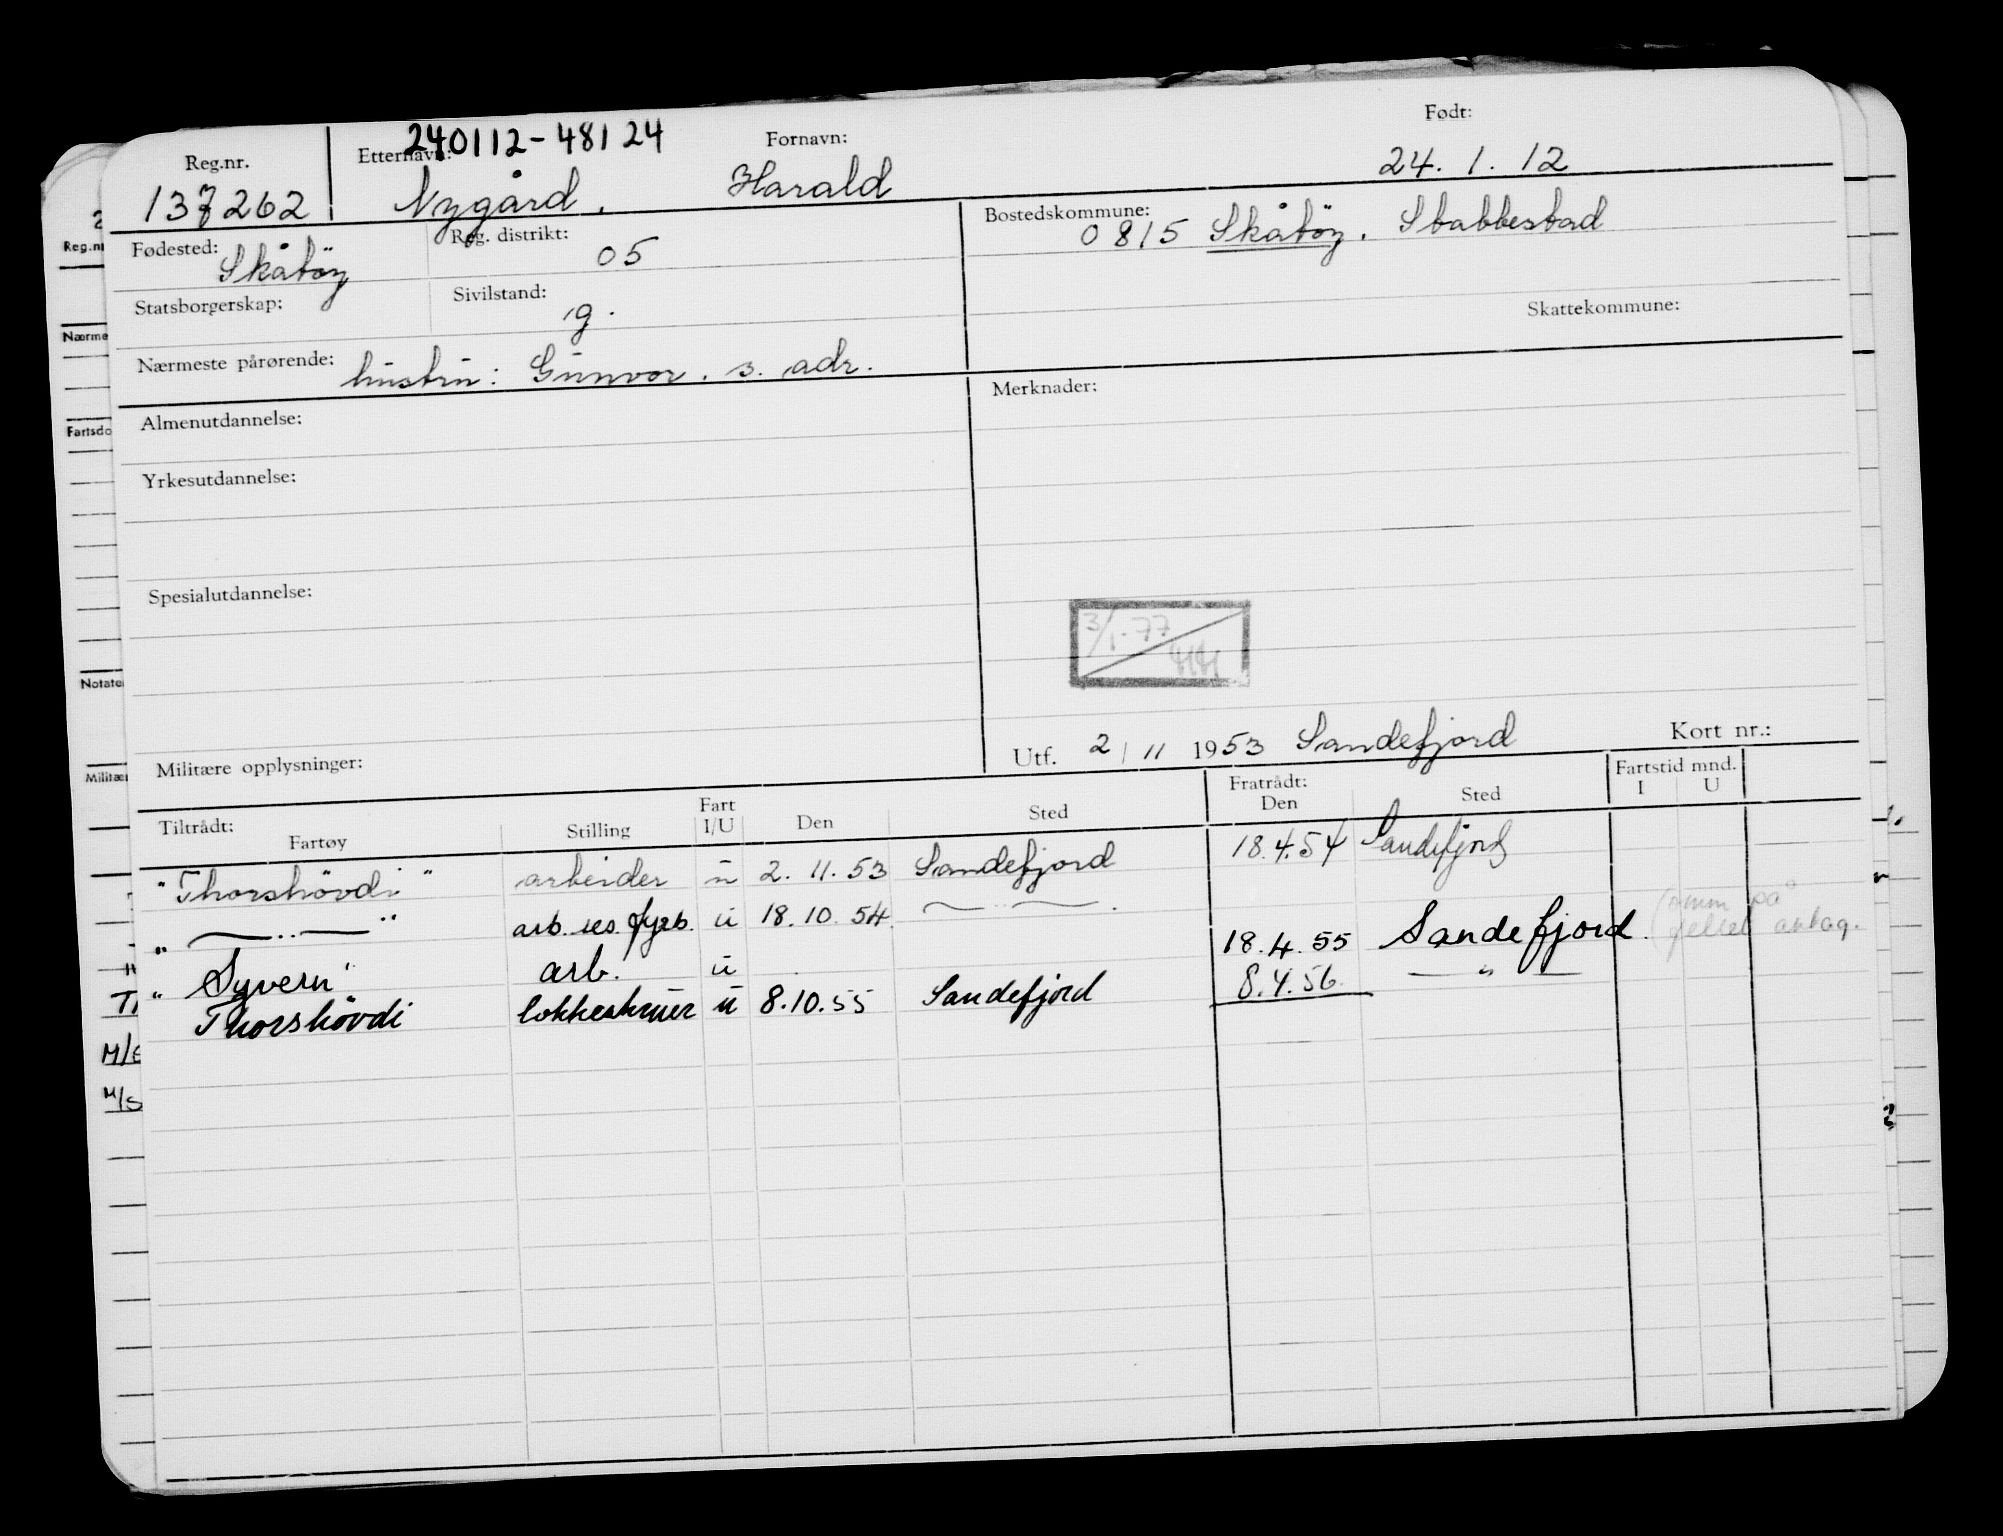 240112-48124
Reg.nr. Etternavn: Fornavn: Født:
137262 Nygård, Harald 24. 1. 12
Fødested: Skåtöy Reg. distrikt: 05 Bostedskommune: 0815 Skåtöy. Stabbestad
Statsborgerskap: Sivilstand: g. Skattekommune:
Nærmeste pårørende: hustru: Gunvor. s. adr.
Almenutdannelse: Merknader:
Yrkesutdannelse:
Spesialutdannelse:
3/1-77
HH
Militære opplysninger: Utf. 2/11 1953 Sandefjord Kort nr.:
Tiltrådt: Fratrådt: Fartstid mnd.
Fartøy Stilling Fart I/U Den Sted Den Sted I U
"Thorshövdi" arbeider u 2. 11. 53 Sandefjord 18.4.54 Sandefjord
" —..— " arb. res. fyrb. u 18. 10. 54 —..— . 18.4.55 Sandefjord. på
"Syvern" arb. u
Thorshövdi kokkeskruer u 8.10.55 Sandefjord 8.4.56. — " —
Reg.n
Nærme
Fartsdo
Notate
Militæ
M/S